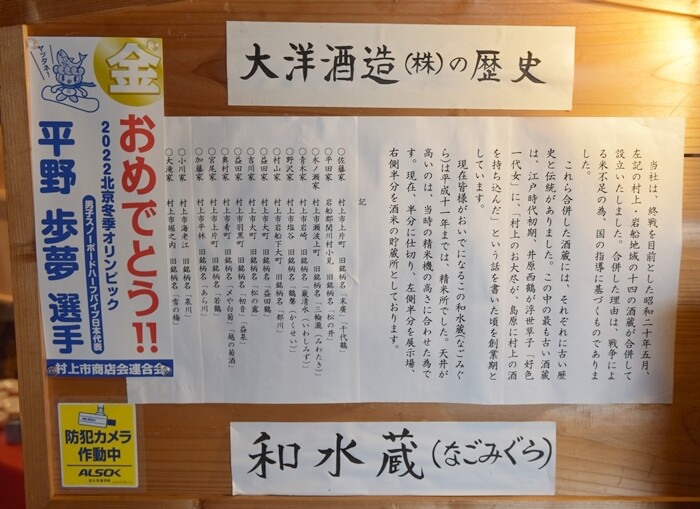 大洋酒造(株)の歴史
当社は、終戦を目前とした昭和二十年五月、
左記の村上・岩船地域の十四の酒蔵が合併して
設立いたしました。合併した理由は、戦争によ
る米不足の為、国の指導に基づくものでありま
した。
これら合併した酒蔵には、それぞれに古い歴
史と伝統がありました。この中の最も古い酒蔵
は、江戸時代初期、井原西鶴が浮世草子「好色
一代女」に、「村上のお大尽が、島原に村上の酒
を持ち込んだ」という話を書いた頃を創業期と
しています。
現在皆様がおいでになるこの和水蔵(なごみぐ
ら)は平成十一年までは、精米所でした。天井が
高いのは、当時の精米機の高さに合わせた為で
す。現在、半分に仕切り、左側半分を展示場、
右側半分を酒米の貯蔵所としております。
記
○佐藤家 村上市上片町 旧銘柄名「末廣」「千代鶴」
○平田家 岩船郡関川村小見 旧銘柄名「松の井」
○木ノ瀬家 村上市瀬波上町 旧銘柄名「三輪瀧(みわたき)」
○青木家 村上市岩崎 旧銘柄名「巌清水(いわしみず)」
○野沢家 村上市塩谷 旧銘柄名「鶴聲(かくせい)」
○村山家 村上市岩船下大町 旧銘柄名「都川」
○益田家 村上市大町 旧銘柄名「益田鶴」
○吉川家 村上市大町 旧銘柄名「松の露」
○益田家 村上市羽黒町 旧銘柄名「初音」「益泉」
○奥村家 村上市肴町 旧銘柄名「〆や白菊」「越の菊酒」
○宮尾家 村上市上片町 旧銘柄名「若鶴」
○加藤家 村上市平林 旧銘柄名「あら川」
○小川家 村上市海老江 旧銘柄名「泉川」
○大滝家 村上市堀之内 旧銘柄名「雪の梅」
ヤッタネー
金
おめでとう!!
2022北京冬季オリンピック
男子スノーボードハーフパイプ日本代表
平野 歩夢 選手
村上市商店会連合会
防犯カメラ
作動中
ALSOK
和水蔵(なごみぐら)